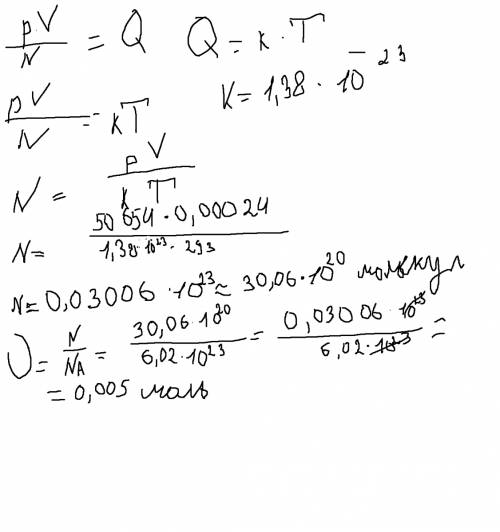 pV/N = Q Q = k · T
K = 1,38 · 10⁻²³
pV/N = kT
N = pV/kT
N = 50 654 · 0,00024 / 1,38 · 10²³ · 293
N = 0,03006 · 10²³ ≈ 30,06 · 10²⁰ молекул
υ = N/NA = 30,06 · 10²⁰ / 6,02 · 10²³ = 0,03006 · 10²³ / 6,02 · 10²³ =
= 0,005 моль